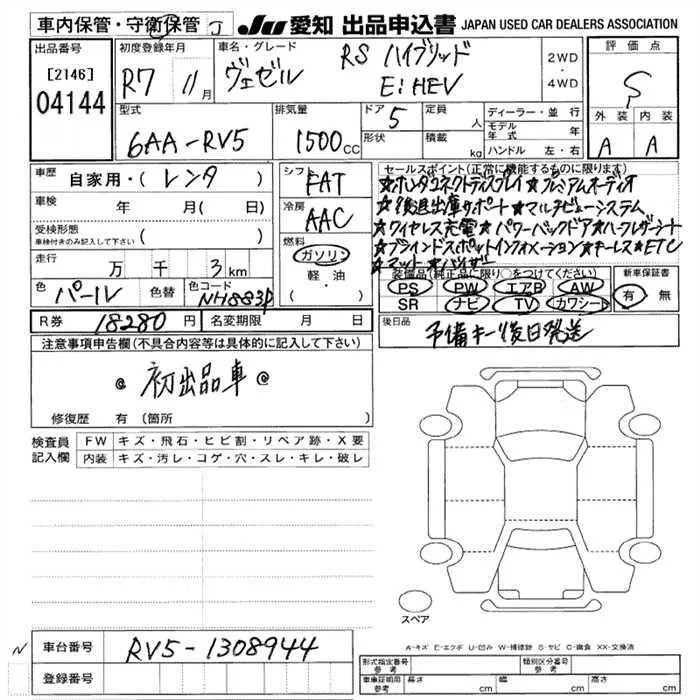 車内保管・守衛保管 J
JU 愛知 出品申込書 JAPAN USED CAR DEALERS ASSOCIATION
出品番号
[2146]
04144
初度登録年月
R7 11月
車名・グレード
ヴェゼル
RS ハイブリッド
E:HEV
2WD
・
4WD
評価点
S
外装 内装
A A
型式
6AA-RV5
排気量
1500cc
ドア 5
形状
定員 人
積載 kg
ディーラー・並行
モデル年式 年
ハンドル 左・右
車歴
自家用・( レンタ )
車検 年 月( 日)
受検形態
車検付きのみ記入して下さい ( )
走行 万 千 3km
色 パール 色替 色コード NH883P
シフト FAT
冷房 AAC
燃料
ガソリン
軽・油
( )
セールスポイント(正常に機能するものに限ります)
★ホンダコネクトディスプレイ★プレミアムオーディオ
★後退出庫サポート★マルチビューシステム
★ワイヤレス充電★パワーバックドア★ハーフレザーシート
★ブラインドスポットインフォメーション★キーレス★ETC
★マット★バイザー
装備品(純正品に限り○をつけてください)
PS PW エアB AW
SR ナビ TV カワシート
新車保証書
有・無
R券 18280円 名変期限 月 日
後日品
予備キー後日発送
注意事項申告欄(不具合内容等は具体的に記入して下さい)
@ 初出品車 @
修復歴 有(箇所 )
検査員記入欄
FW キズ・飛石・ヒビ割・リペア跡・X要
内装 キズ・汚レ・コゲ・穴・スレ・キレ・破レ
スペア
A-キズ E-エクボ U-凹み W-補修跡 S-サビ C-腐食 XX-交換済
N
車台番号 RV5-1308944
登録番号
形式指定番号 参考
類別区分番号 参考
車庫証明用 参考 長さ cm 幅 cm 高さ cm